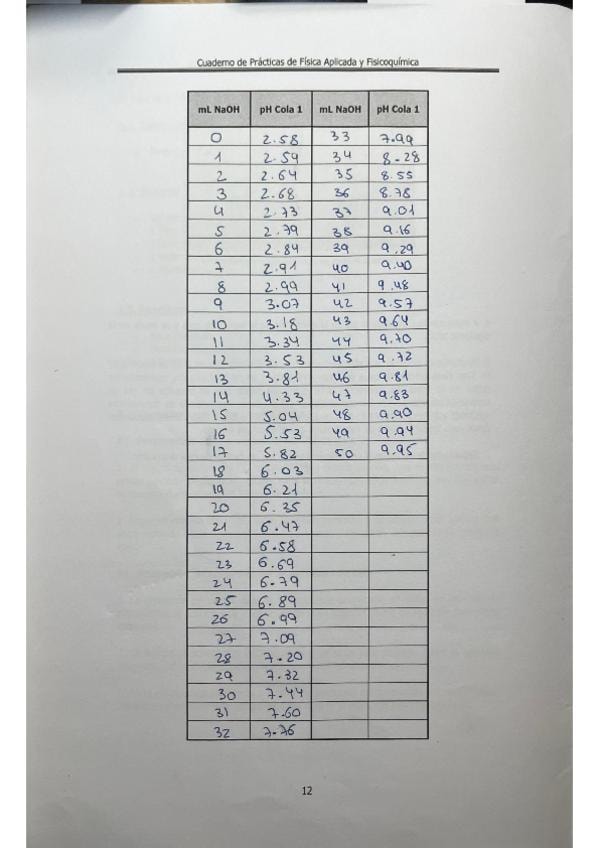 Cuaderno de Prácticas de Física Aplicada y Fisicoquímica
mL NaOH pH Cola 1 mL NaOH pH Cola 1
0 2.58 33 7.99
1 2.59 34 8.28
2 2.64 35 8.55
3 2.68 36 8.78
4 2.73 37 9.01
5 2.79 38 9.16
6 2.84 39 9.29
7 2.91 40 9.40
8 2.99 41 9.48
9 3.07 42 9.57
10 3.18 43 9.64
11 3.34 44 9.70
12 3.53 45 9.72
13 3.81 46 9.81
14 4.33 47 9.83
15 5.04 48 9.90
16 5.53 49 9.94
17 5.82 50 9.95
18 6.03
19 6.21
20 6.35
21 6.47
22 6.58
23 6.69
24 6.79
25 6.89
26 6.99
27 7.09
28 7.20
29 7.32
30 7.44
31 7.60
32 7.76
12